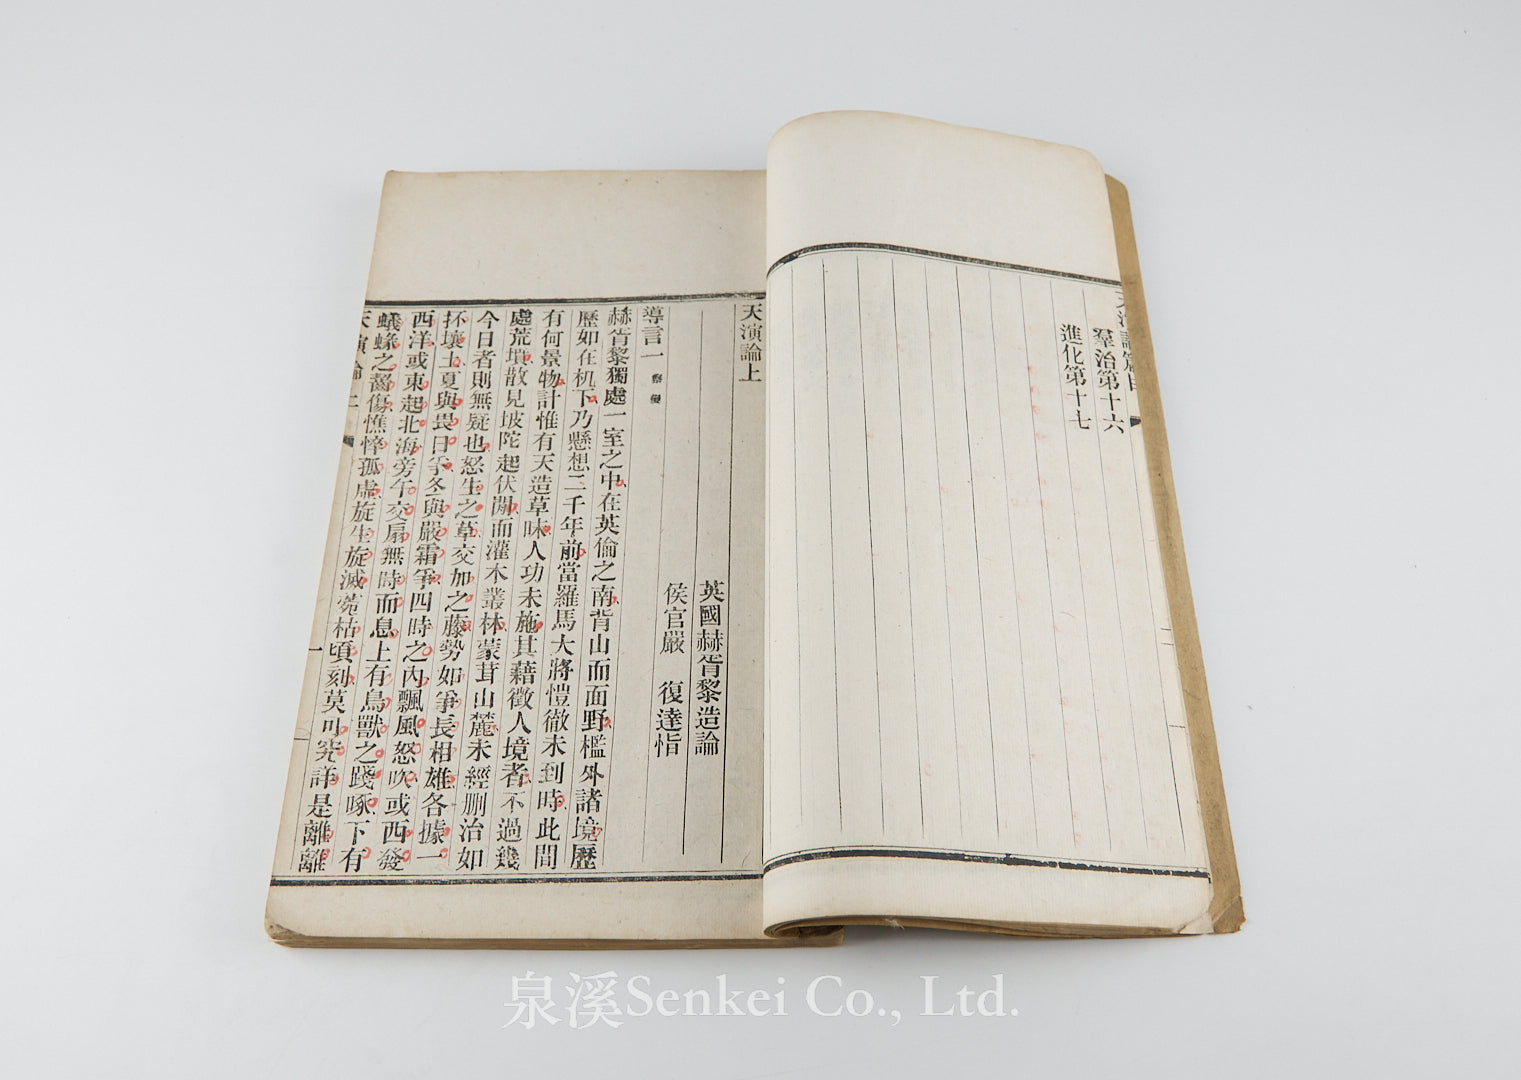 羣治第十六
進化第十七
天演論上
英國赫胥黎造論
侯官嚴 復達恉
導言一 察變
赫胥黎獨處一室之中在英倫之南背山而面野檻外諸境歷
歷如在机下乃懸想二千年前當羅馬大將愷徹未到時此間
有何景物計惟有天造草昧人功未施其藉徵人境者不過幾
處荒墳散見坡陀起伏間而灌木叢林蒙茸山麓未經刪治如
今日者則無疑也怒生之草交加之藤勢如爭長相雄各據一
抔壤土夏與畏日爭冬與嚴霜爭四時之內飄風怒吹或西發
西洋或東起北海旁午交扇無時而息上有鳥獸之踐啄下有
蟻蝝之齧傷憔悴孤虛旋生旋滅菀枯頃刻莫可究詳是離離
天演論上
一
泉溪Senkei Co., Ltd.